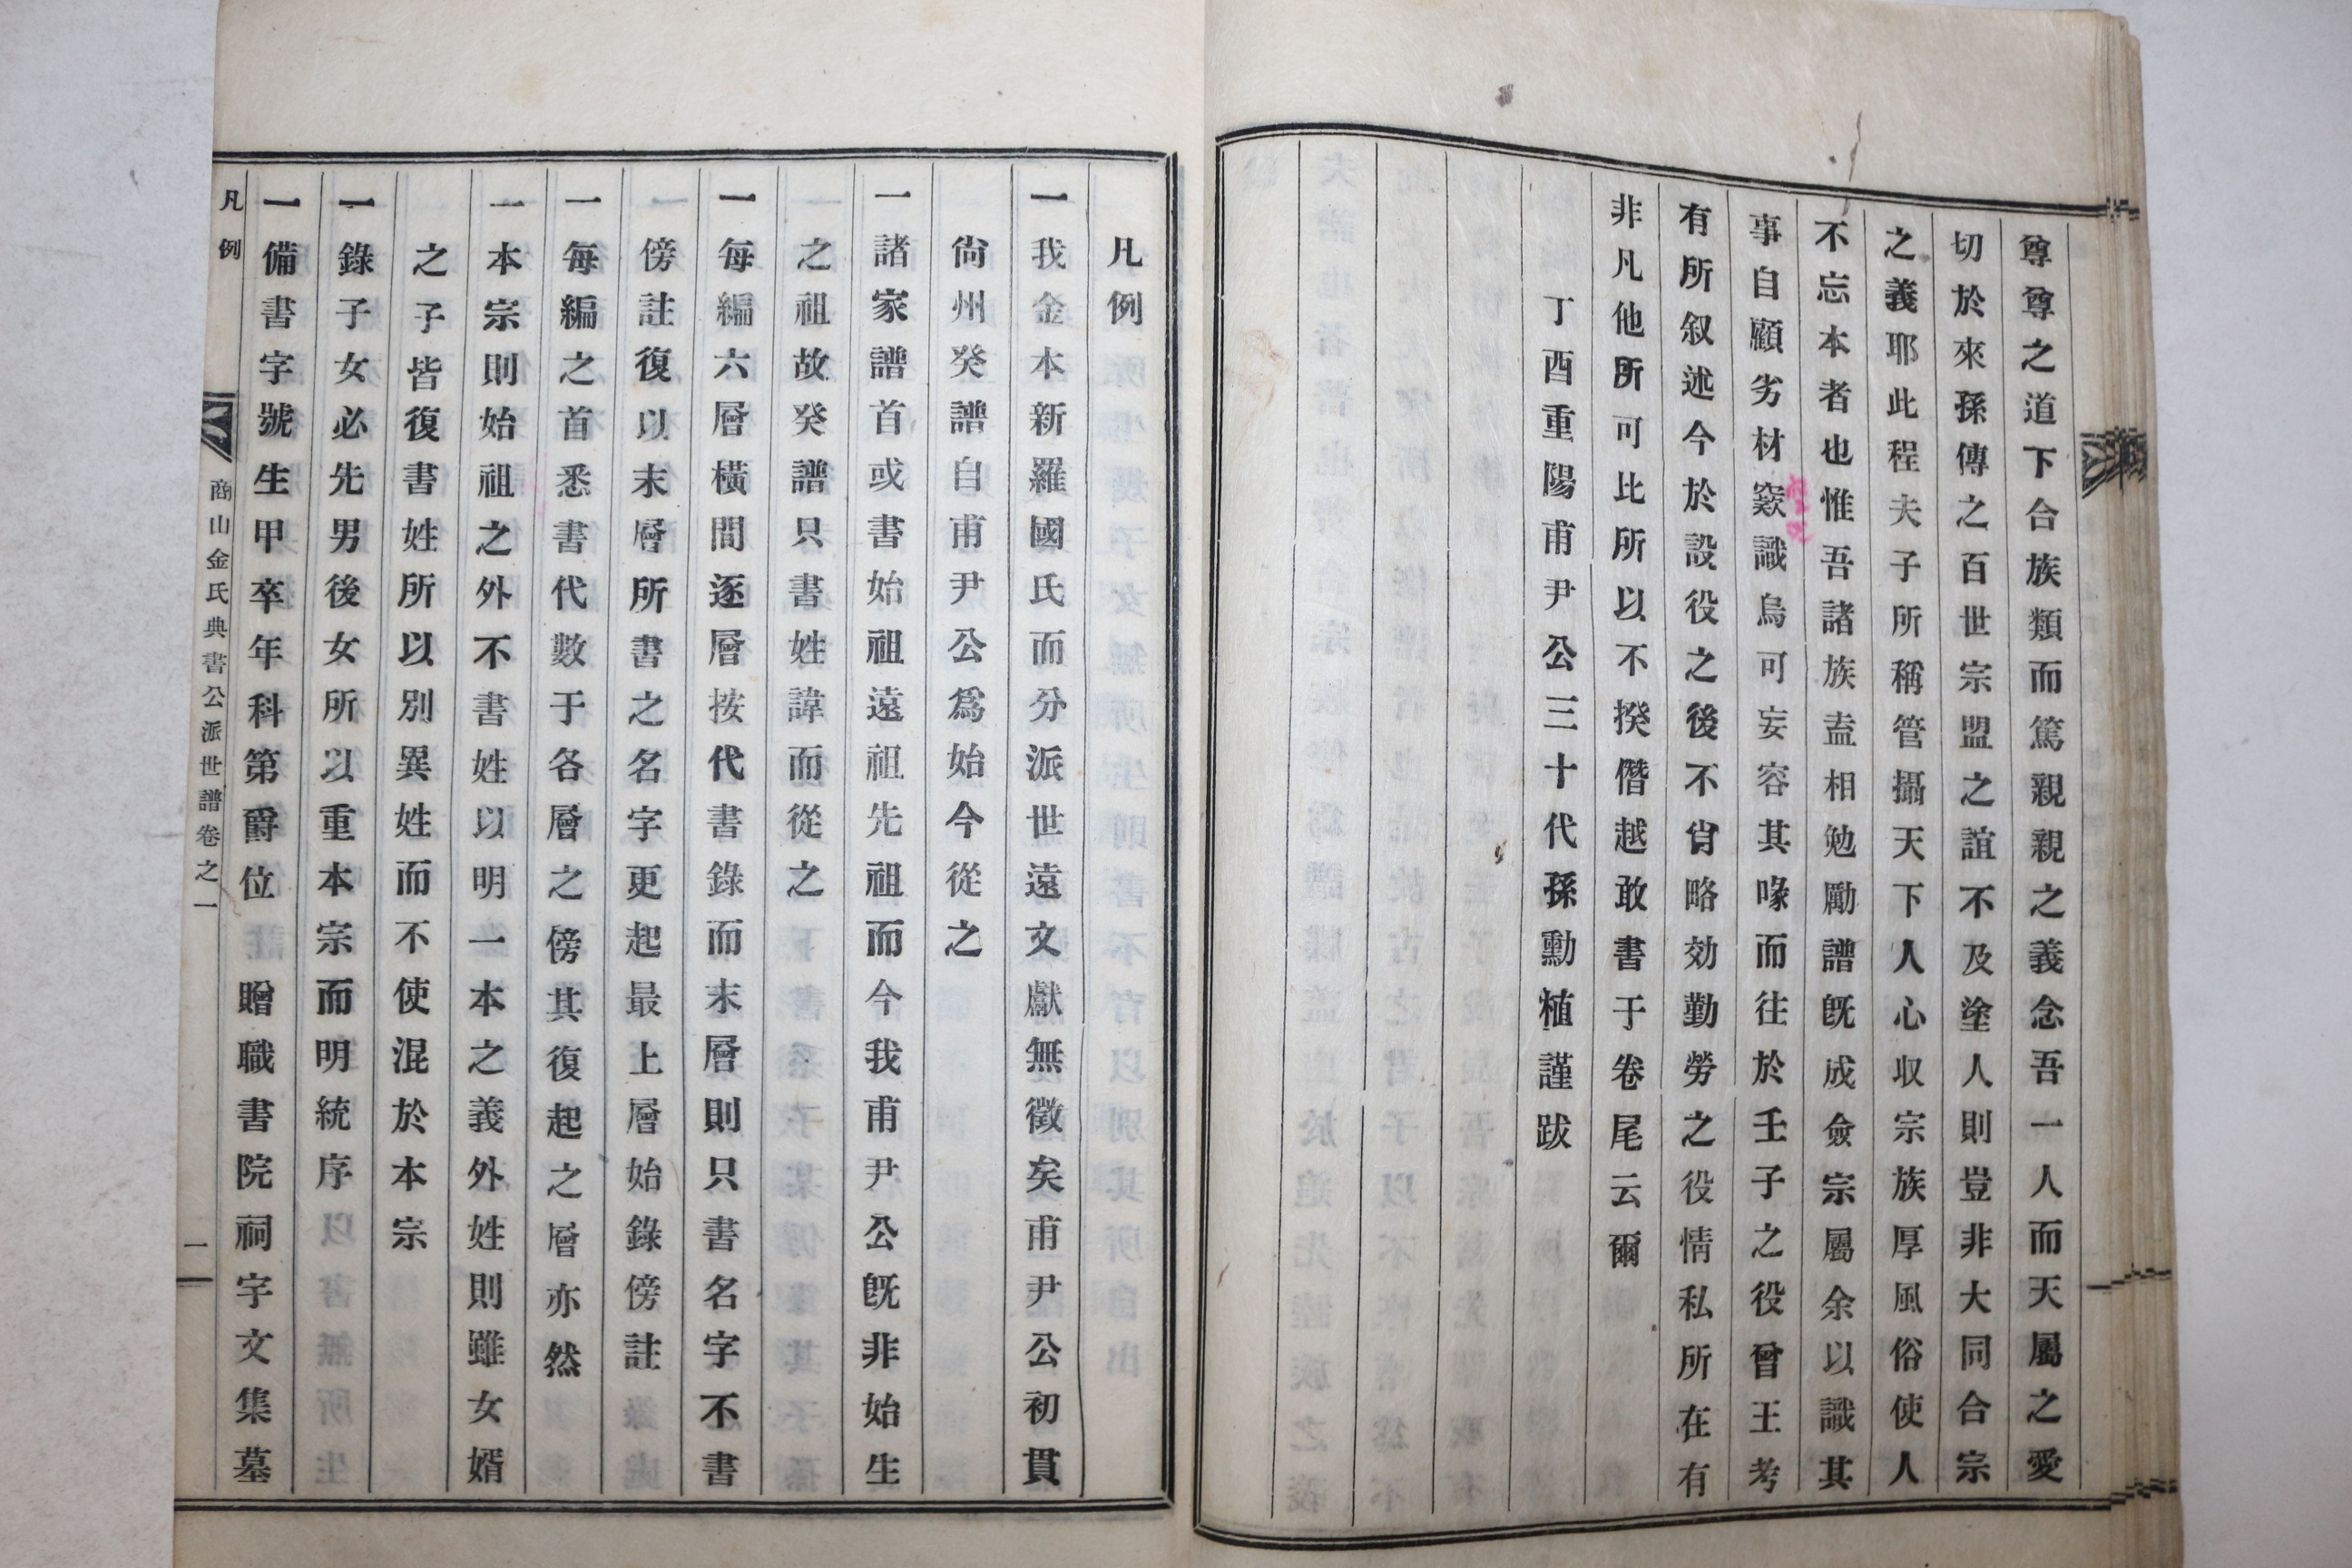 尊尊之道下合族類而篤親親之義念吾一人而天屬之愛
切於來孫傳之百世宗盟之誼不及塗人則豈非大同合宗
之義耶此程夫子所稱管攝天下人心収宗族厚風俗使人
不忘本者也惟吾諸族盍相勉勵譜旣成僉宗屬余以識其
事自顧劣材窾識烏可妄容其喙而往於壬子之役曾王考
有所叙述今於設役之後不肯略効勤勞之役情私所在有
非凡他所可比所以不揆僭越敢書于卷尾云爾
丁酉重陽甫尹公三十代孫勳植謹跋
凡例
一我金本新羅國氏而分派世遠文獻無徵矣甫尹公初貫
尙州癸譜自甫尹公爲始今從之
一諸家譜首或書始祖遠祖先祖而今我甫尹公旣非始生
之祖故癸譜只書姓諱而從之
一每編六層橫間逐層按代書錄而末層則只書名字不書
傍註復以末層所書之名字更起最上層始錄傍註
一每編之首悉書代數于各層之傍其復起之層亦然
一本宗則始祖之外不書姓以明一本之義外姓則雖女婿
之子皆復書姓所以別異姓而不使混於本宗
一錄子女必先男後女所以重本宗而明統序
一備書字號生甲卒年科第爵位贈職書院祠宇文集墓
凡例 商山金氏典書公派世譜卷之一 一